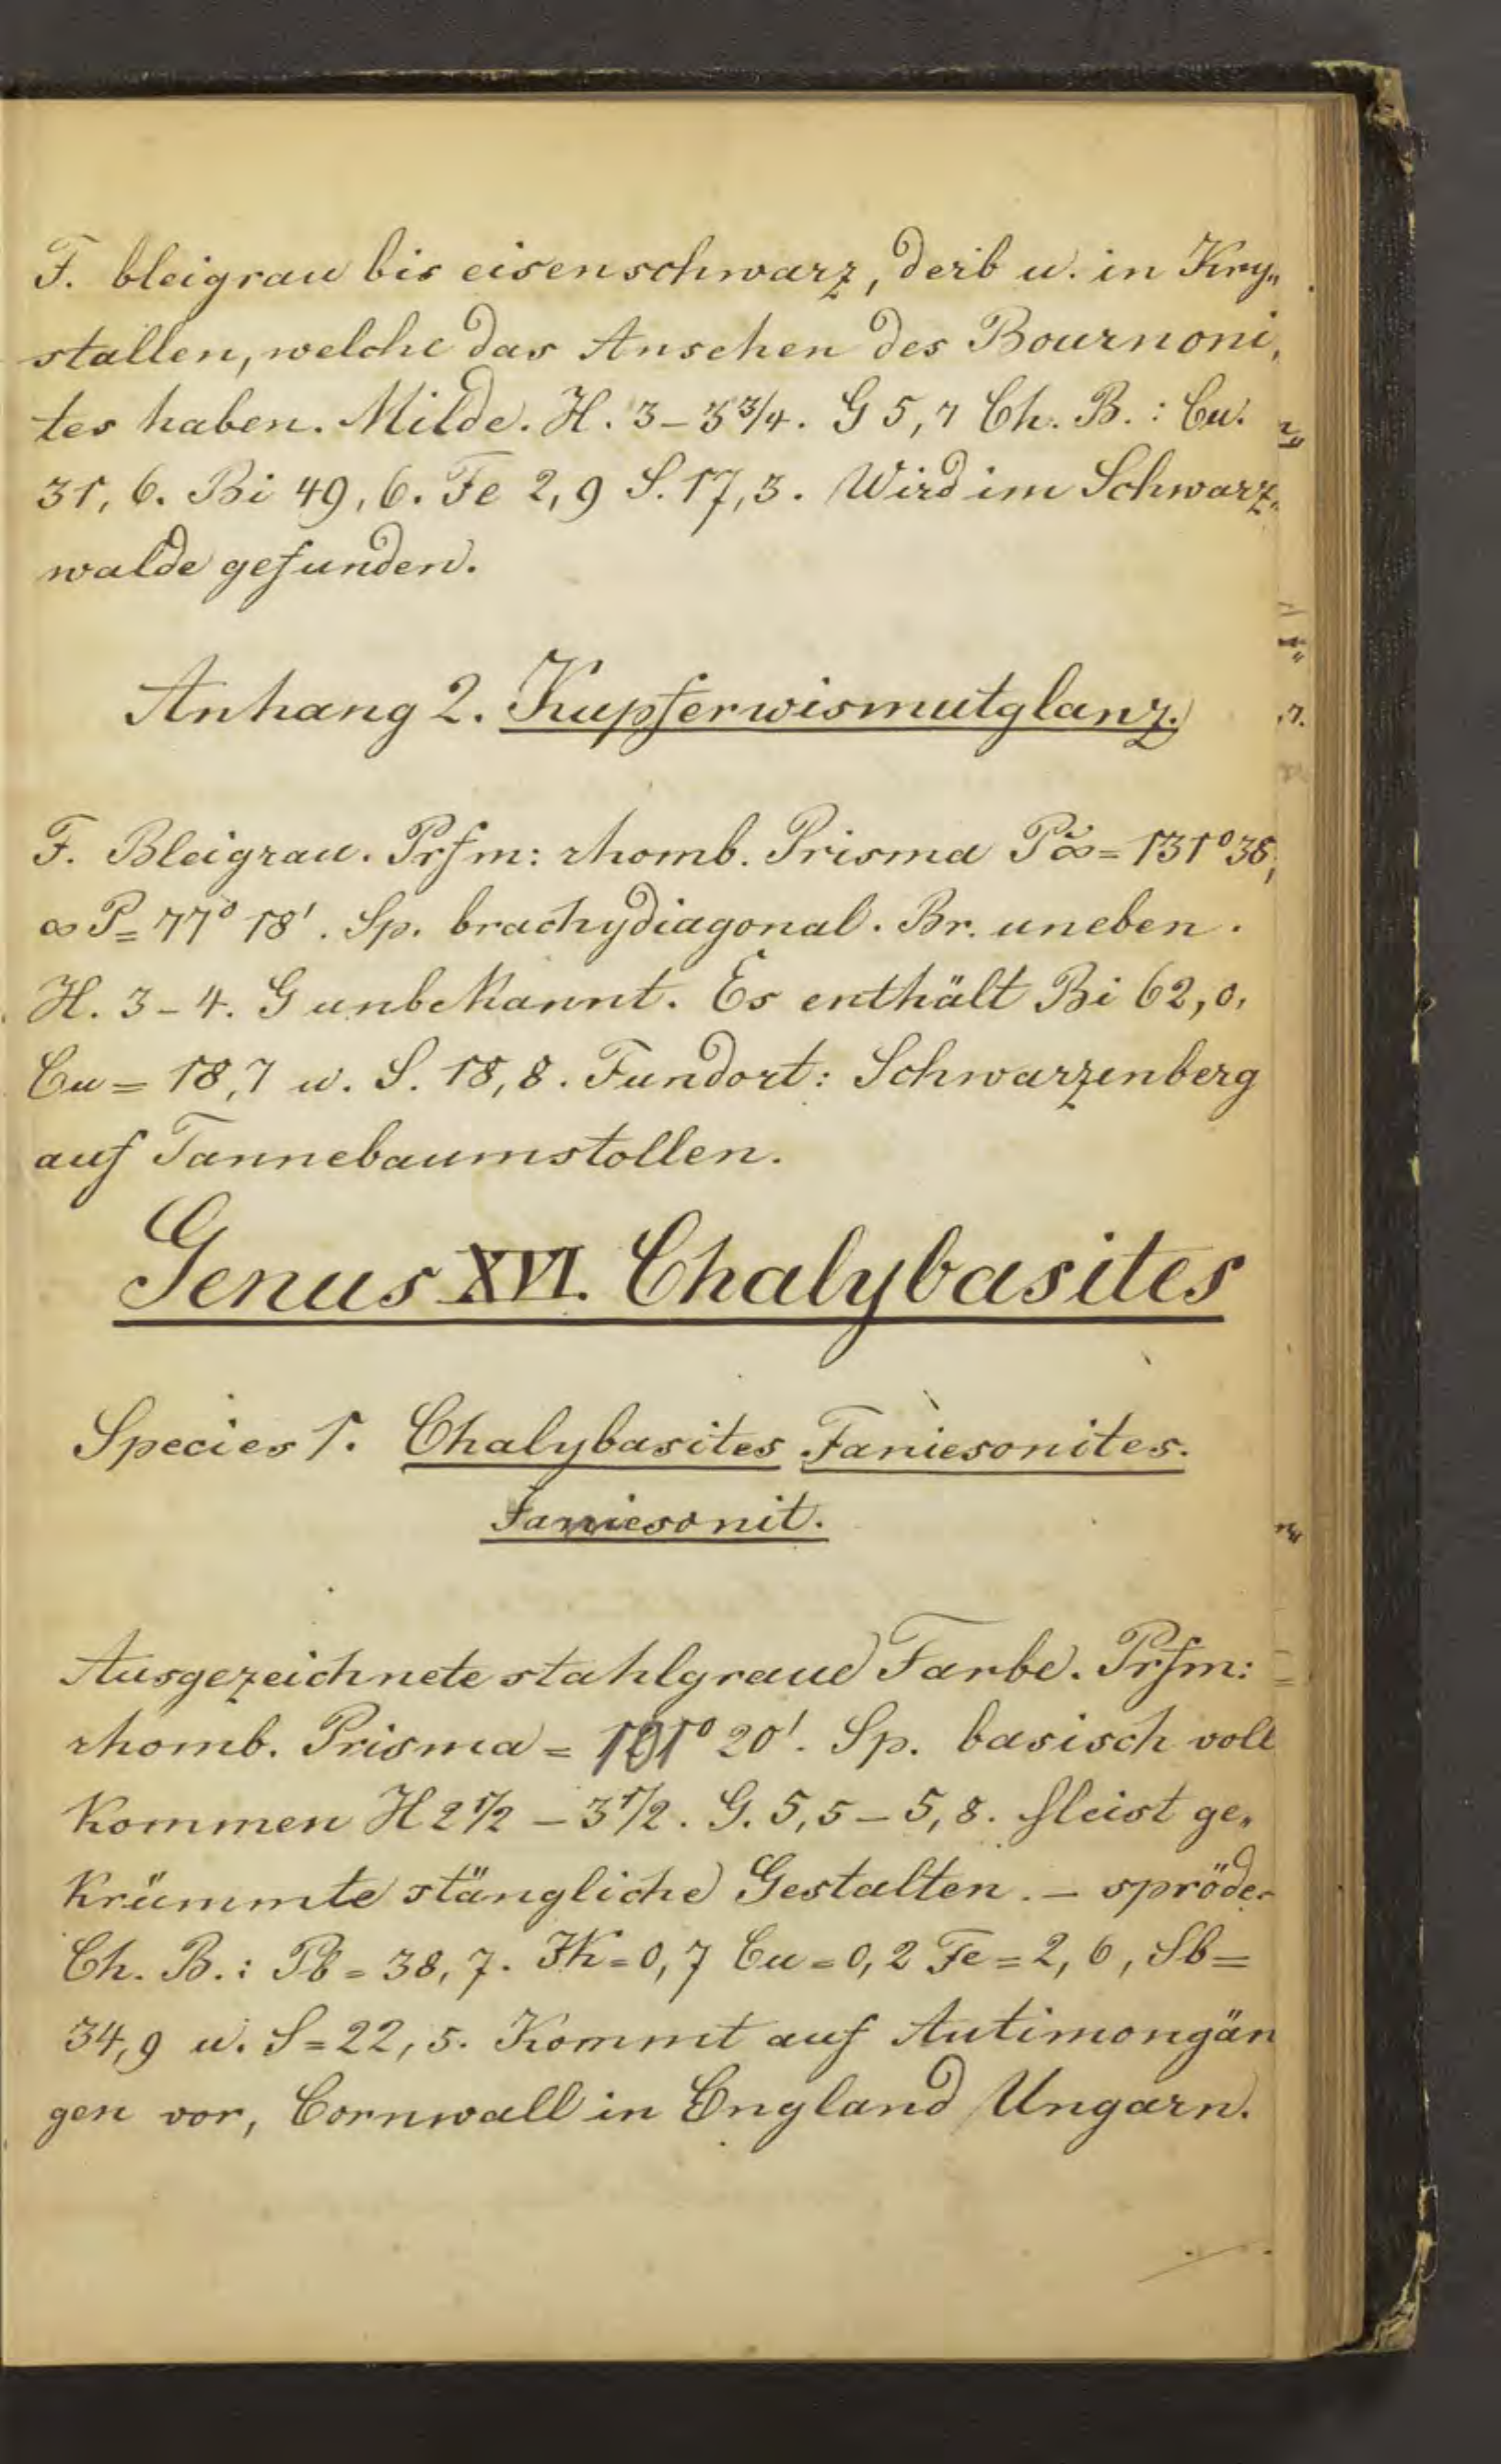 F. bleigrau bis eisenschwarz, derb u. in Kry„
stallen, welche das Ansehen des Bournoni„
tes haben. Milde. H. 3–3 3/4. G 5,7 Ch. B.: Cu.
31, 6. Bi 49, 6. Fe 2,9 S. 17,3. Wird im Schwarz„
walde gefunden.
Anhang 2. Kupferwismutglanz.
F. Bleigrau. Prfm: rhomb. Prisma P̆∞ = 131° 36,
∞ P = 77° 18'. Sp. brachydiagonal. Br. uneben.
H. 3–4. G unbekannt. Es enthält Bi 62,0,
Cu = 18,7 u. S. 18,8. Fundort: Schwarzenberg
auf Tannebaumstollen.
Genus XVI. Chalybasites
Species 1. Chalybasites Jamiesonites.
Jamiesonit.
Ausgezeichnete stahlgraue Farbe. Prfm:
rhomb. Prisma = 101° 20'. Sp. basisch voll
kommen H 2 1/2 – 3 1/2. G. 5,5–5,8. Meist ge„
krümmte stängliche Gestalten. – spröde.
Ch. B.: Pb = 38,7. Zk = 0,7 Cu = 0,2 Fe = 2,6, Sb =
34,9 u. S = 22,5. Kommt auf Antimongän
gen vor, Cornwall in England Ungarn.